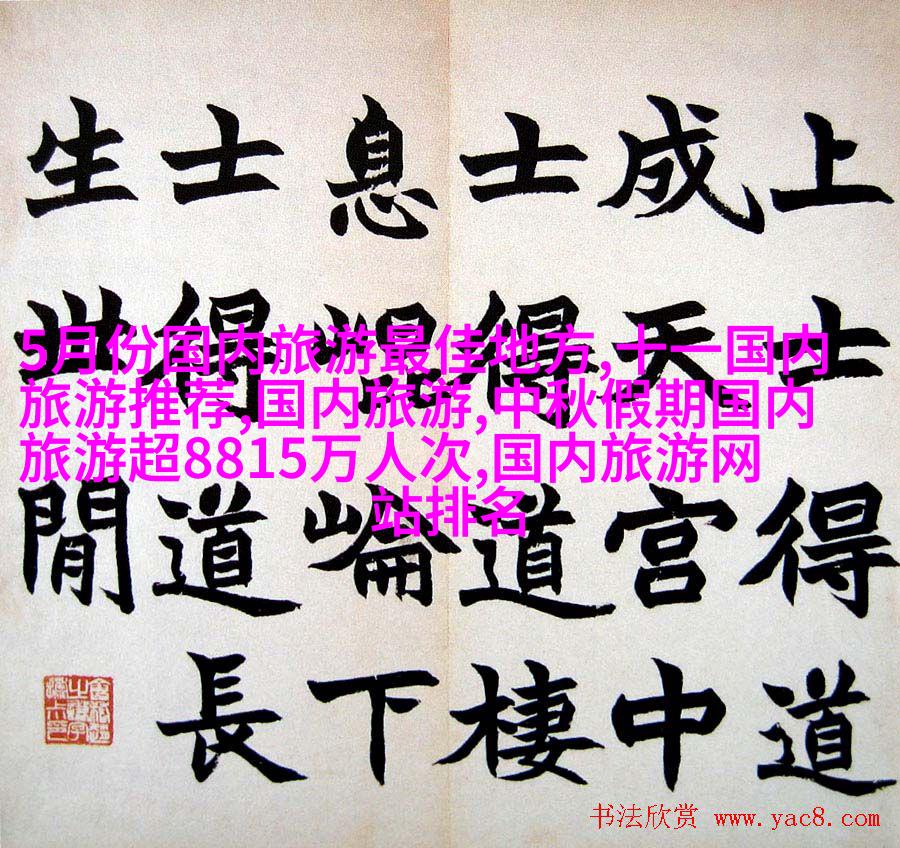 上士得道
成天宮中
士得道棲
息崐崘下
士得道長
生世閒
5月份国内旅游最佳地方,十一国内
旅游推荐,国内旅游,中秋假期国内
旅游超8815万人次,国内旅游网
站排名
书法欣赏 www.yac8.com